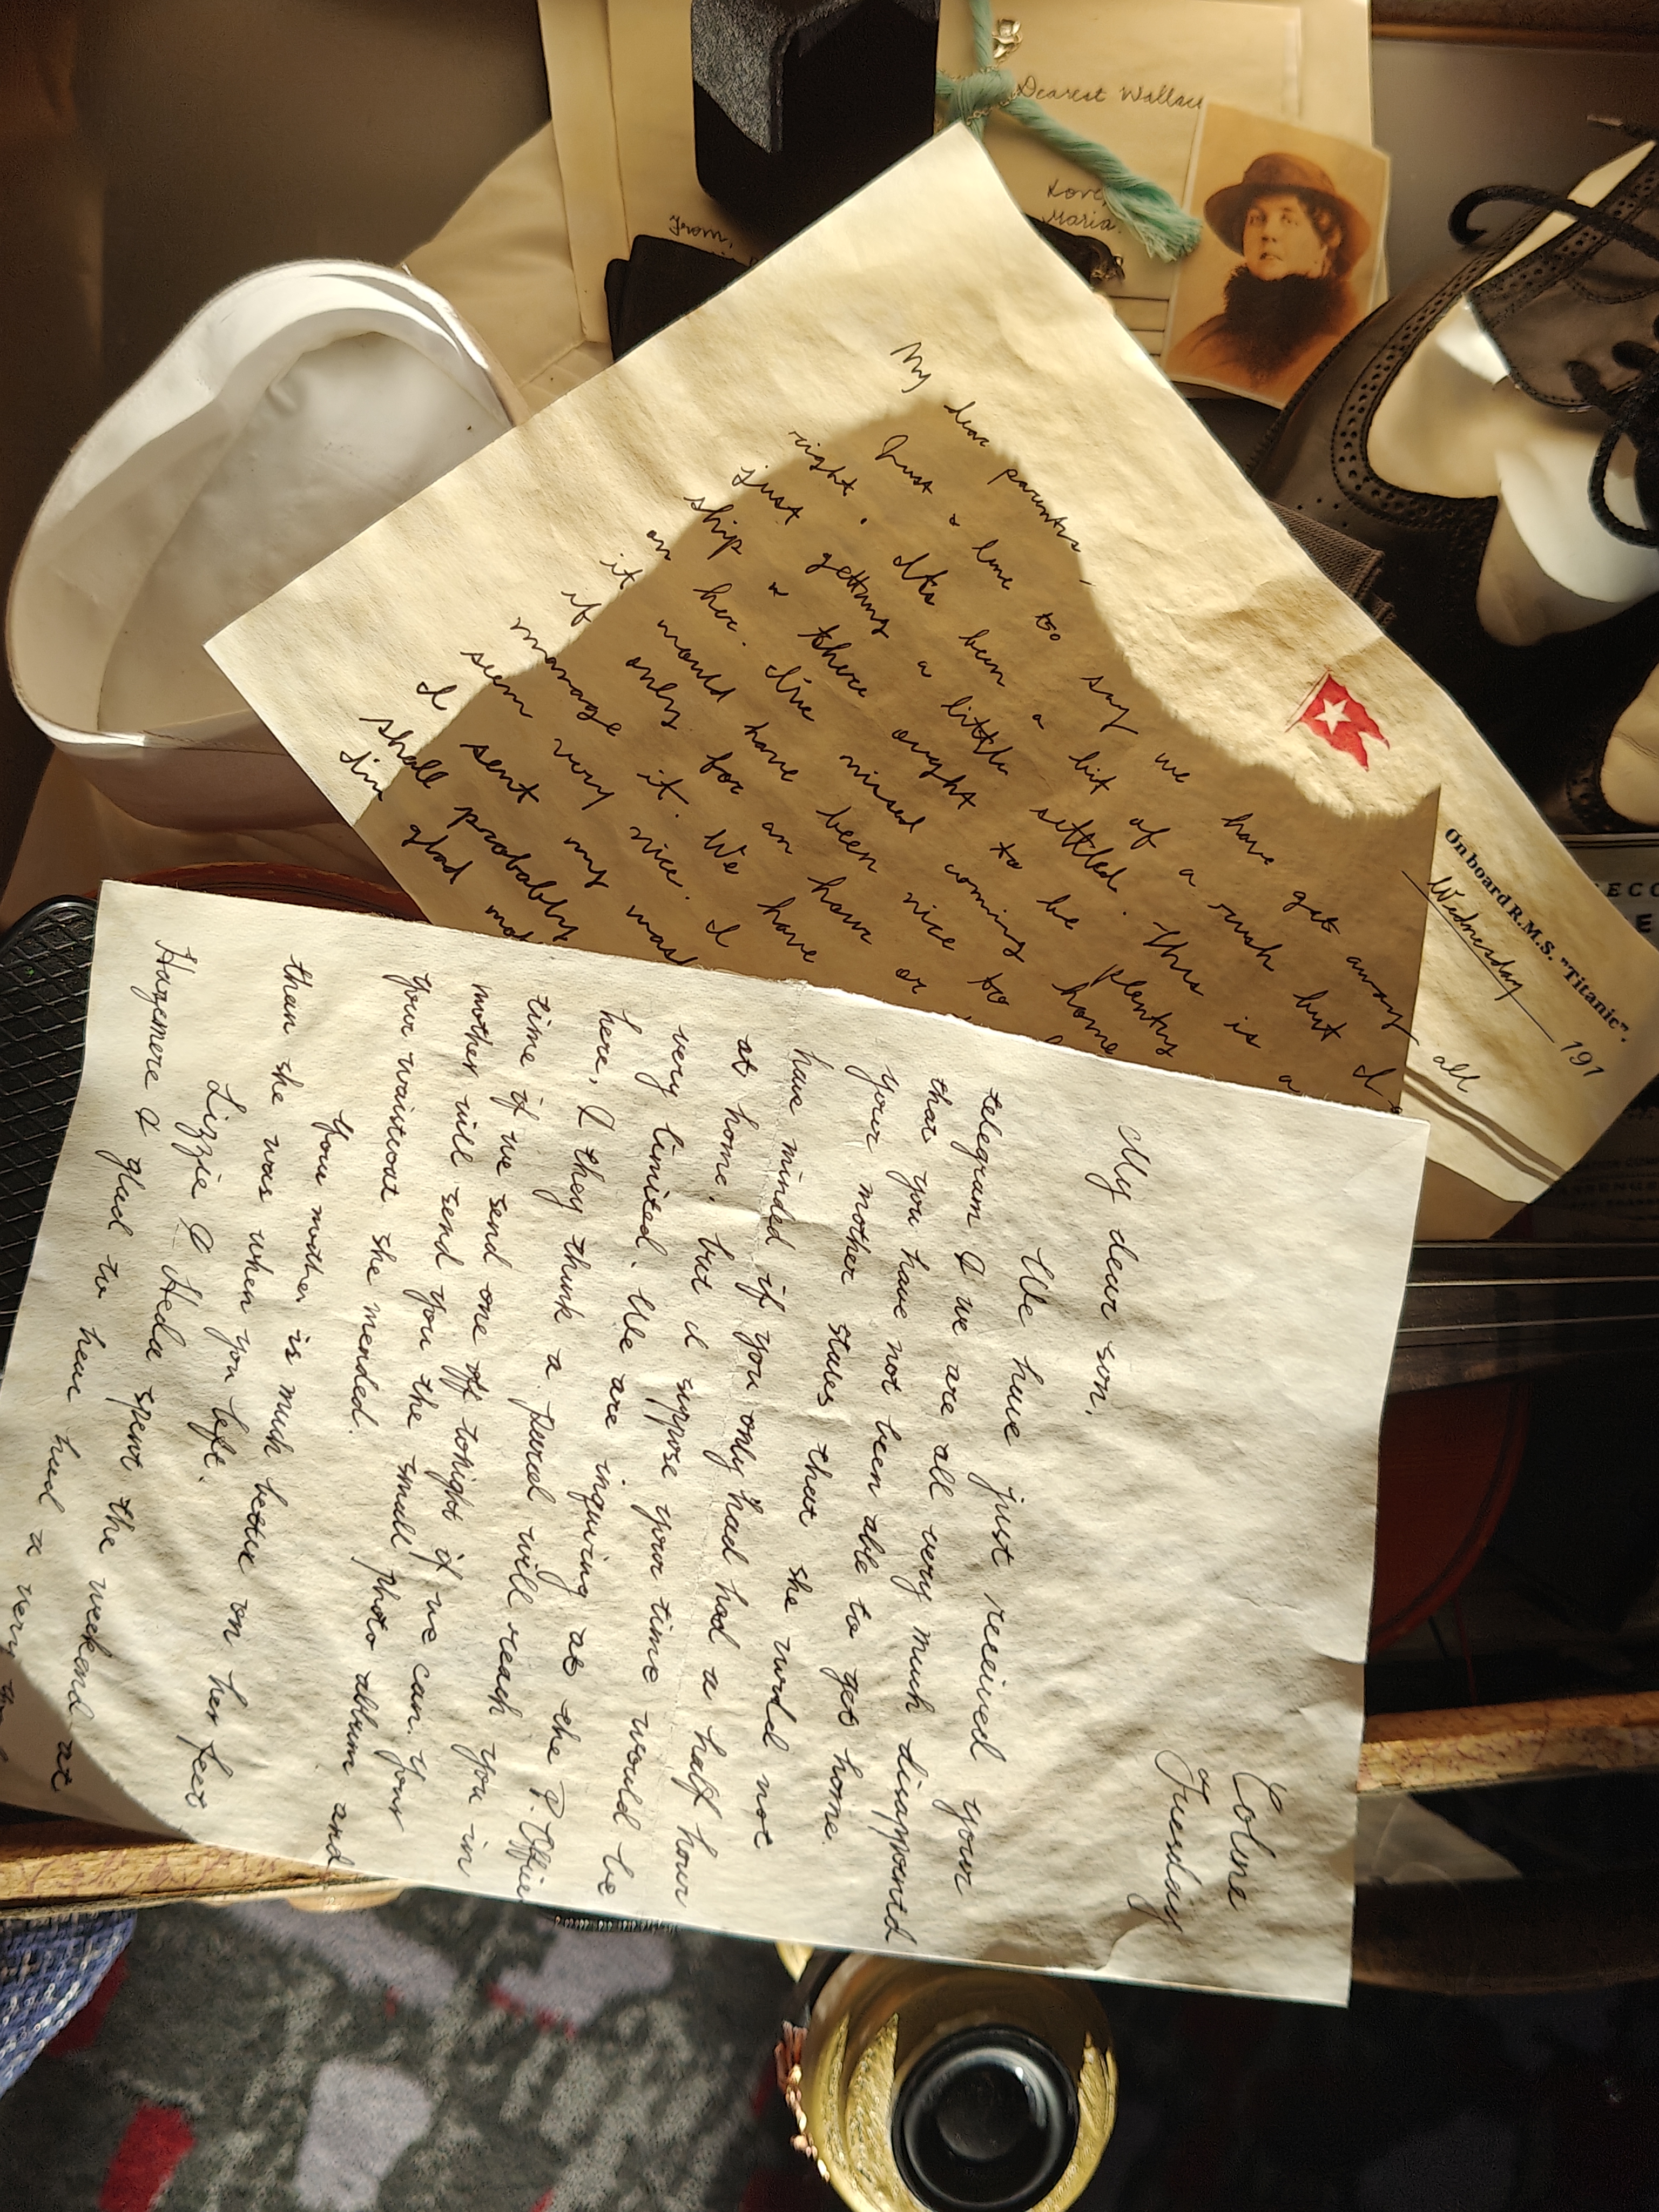 Dearest Wallace
Love,
Maria.
From,
On board R.M.S. "Titanic".
Wednesday 191
My dear parents,
Just a line to say we have got away all
right. It's been a bit of a rush but I
just getting a little settled. This is a
ship & there ought to be plenty
on her. I've missed coming home
it would have been nice to
if only for an hour or
manage it. We have
seem very nice. I
I sent my
shall probably
I'm glad
Colne
Tuesday
My dear son,
We have just received your
telegram & we are all very much disappointd
that you have not been able to get home.
your mother states that she world not
have minded if you only had had a half hour
at home, but I suppose your time would be
very limited. We are inquiring at the P. Office
here, & they think a parcel will reach you in
time if we send one off tonight if we can. your
mother will send you the small photo album and
your waistcoat she mended.
Your mother is much better on her feet
than she was when you left.
Lizzie & Heda spent the weekend at
Hazemere & glad to hear had a very